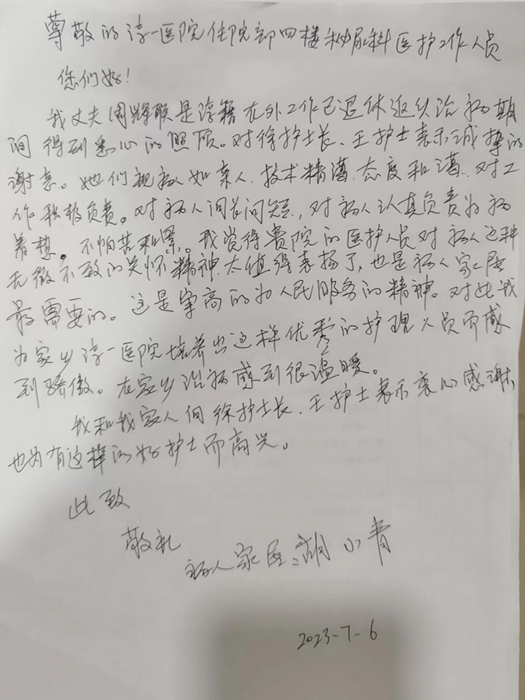 尊敬的淳一医院住院部四楼泌尿科医护工作人员
您们好!
我丈夫周辉联是淳籍在外工作已退休返乡治病期
间得到悉心的照顾。对徐护士长、王护士表示诚挚的
谢意。她们视病人如亲人、技术精湛、态度和蔼、对工
作积极负责。对病人问长问短,对病人认真负责为病
着想。不怕苦和累。我觉得贵院的医护人员对病人这种
无微不致的关怀精神太值得表扬了,也是病人家属
最需要的。这是崇高的为人民服务的精神。对此我
为家乡淳一医院培养出这样优秀的护理人员而感
到骄傲。在家乡治病感到很温暖。
我和我家人向徐护士长、王护士表示衷心感谢
也为有这样的好护士而高兴。
此致
敬礼
病人家属:胡小青
2023-7-6